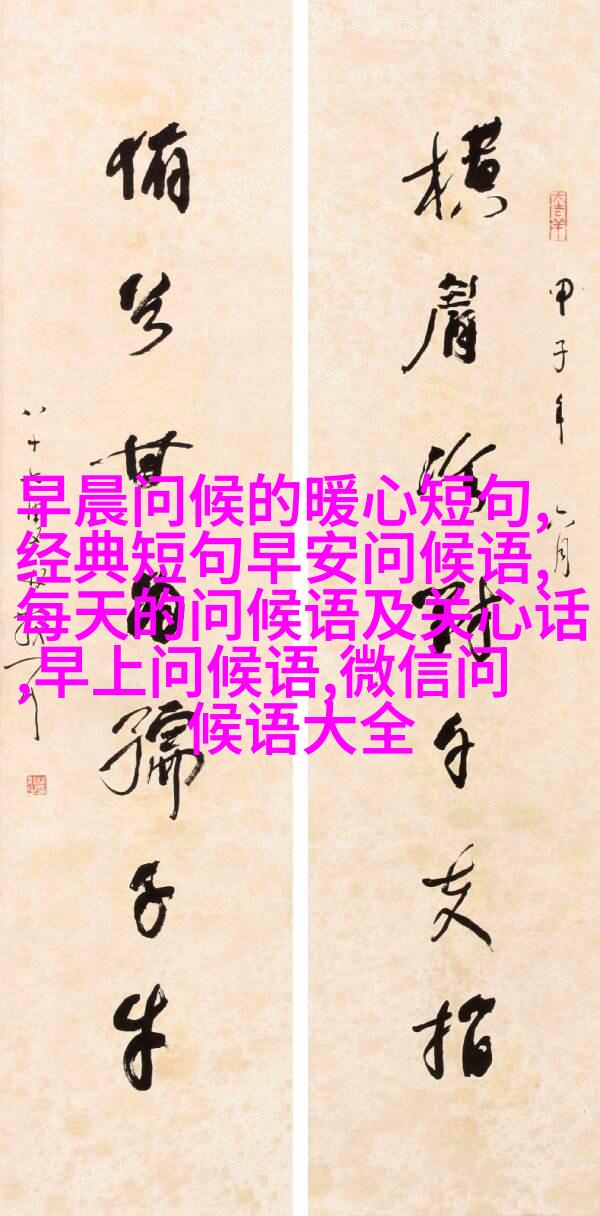 早晨问候的暖心短句,
经典短句早安问候语,
每天的问候语及关心话
,早上问候语,微信问
候语大全
甲子年六月
横眉冷對千夫指
俯首甘為孺子牛